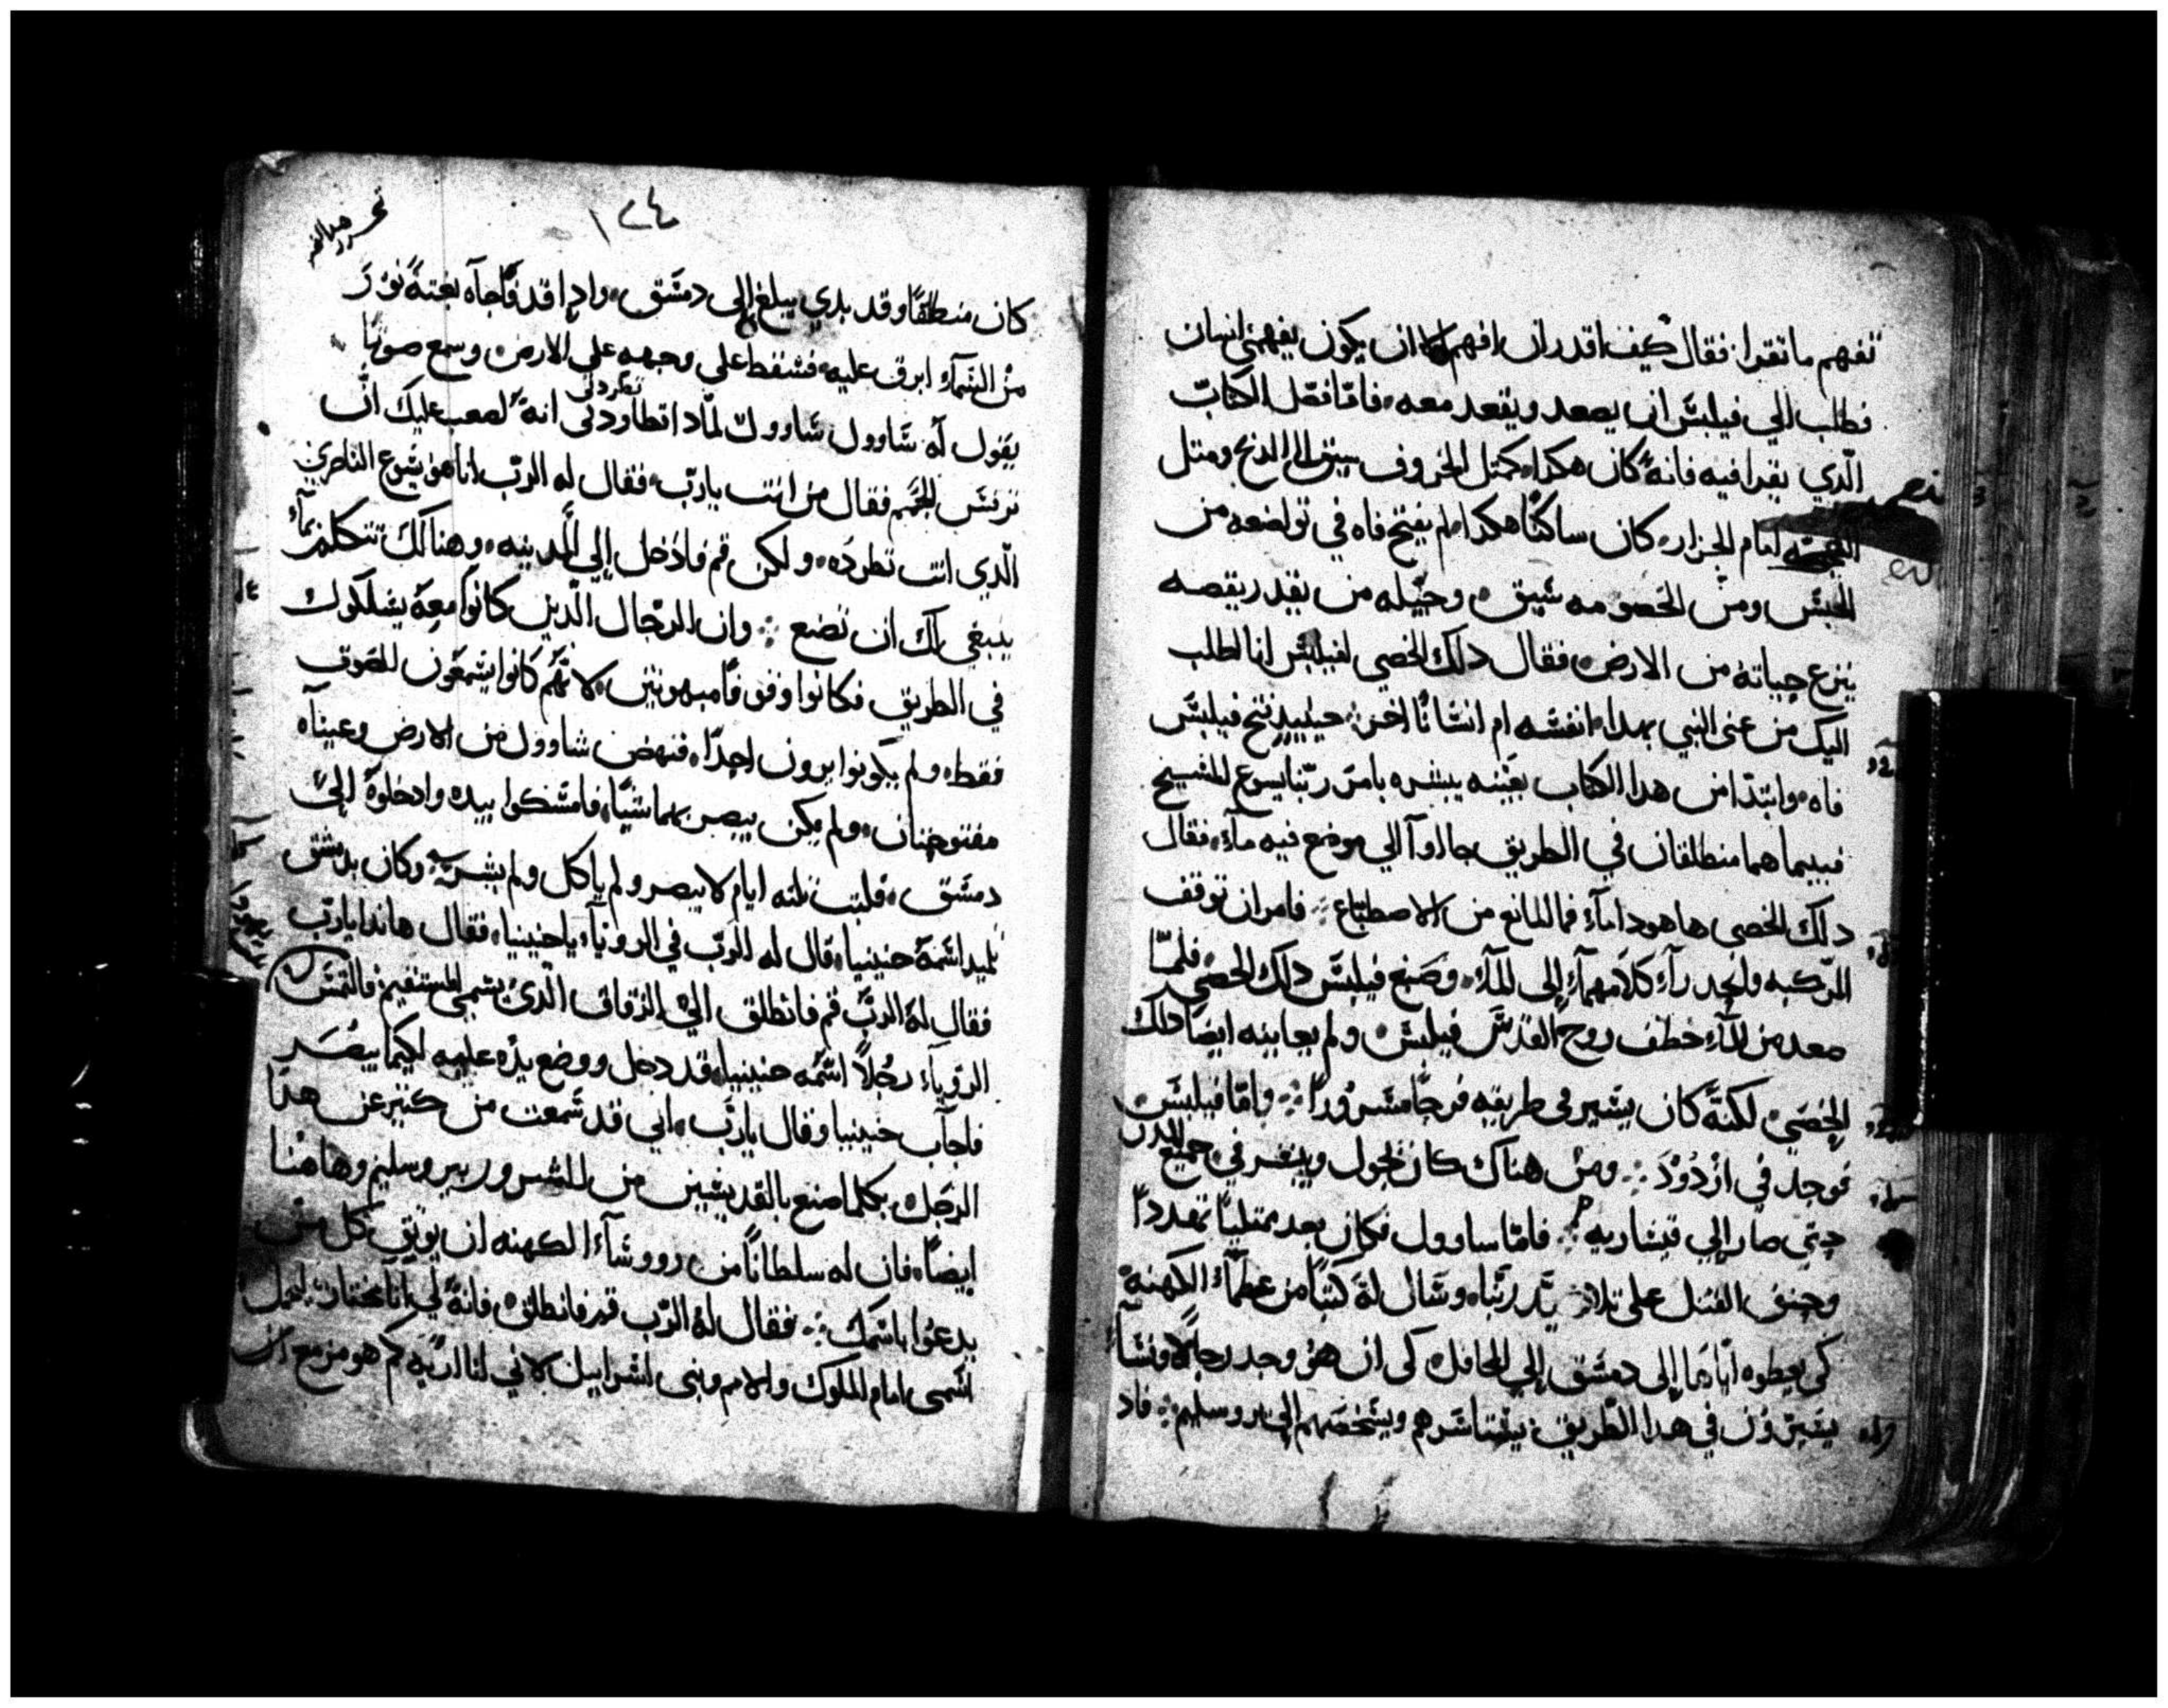 تفهم ما تقرا فقال كيف اقدر ان افهم الا ان يكون يفهمني انسان
فطلب الي فيلبس ان يصعد ويقعد معه فاما فصل الكتاب
الدي يقرا فيه فانه كان هكدا كمثل الخروف سيق الي الدبح ومثل
النعجه امام الجزار كان ساكتا هكدا لم يفتح فاه في تواضعه من
الحبس ومن الخصومه سيق وجيله من يقدر يقصه
ينزع حياته من الارض فقال دلك الخصي لفيلبس انا اطلب
اليك من عنى النبي بهدا انفسه ام انسانا اخر حينيد فتح فيلبس
فاه وابتدا من هدا الكتاب بعينه يبشره بامر ربنا يسوع المسيح
فبينما هما منطلقان في الطريق جااوا الي موضع فيه مآء فقال
دلك الخصي ها هودا مآء فما المانع من الاصطباع فامر ان توقف
المركبه وانحدرآ كلاهمآ إلى المآء وصبغ فيلبس دلك الخصي فلما
صعد من المآء خطف روح القدس فيلبس ولم يعاينه ايضا دلك
الخصي لكنه كان يسير في طريقه فرحا مسرورا واما فيلبس
فوجد في ازدود ومن هناك كان يجول ويبشر في جميع المدن
حتي صار إلي قيساريه فاما ساوول فكان بعد ممتليا تهددا
وحنق القتل على تلاميد ربنا وسال له كتبا من عظمآء الكهنة
كي يعطوه اياها إلى دمشق إلي المحافل كي ان هو وجد رجالا ونسآء
يسيرون في هدا الطريق يستاسرهم ويشخصهم إلى يروسليم فاد
١٢٤
كان منطلقا وقد بدي يبلغ إلى دمشق وادا قد فاجآه بغتة نور
من السمآء ابرق عليه فسقط على وجهه على الارض وسمع صوتا
يقول له شاوول شاوول لمادا تطاردني انه لصعب عليك ان
تطردني
ترفس المجم فقال من انت يارب فقال له الرب انا هو يسوع الناصري
الدي انت تطرده ولكن قم فادخل إلي المدينه وهنالك تتكلم بمآ
ينبغي لك ان تصنع وان الرجال الدين كانوا معه يسلكون
في الطريق فكانوا وقوفا مبهوتين لانهم كانوا يسمعون الصوت
فقط ولم يكونوا يرون احدا فنهض شاوول من الارض وعيناه
مفتوحتان ولم يكن يبصر بهما شيا فامسكوا بيده وادخلوه إلي
دمشق فلبت تلته ايام لا يبصر ولم ياكل ولم يشرب وكان بدمشق
تلميد اسمه حنينيا قال له الرب في الرويآء يا حنينيا فقال هاندا يارب
فقال له الرب قم فانطلق الي الزقاق الدي يسمى المستقيم فالتمس
الرويآء رجلا اسمه حنينيا قد دخل ووضع يده عليه لكيما يبصر
فاجاب حنينيا وقال يارب اني قد سمعت من كتير عن هدا
الرجل بكلما صنع بالقديسين من الشرور بيروسليم وهاهنا
ايضا فان له سلطانا من رووسآء الكهنه ان يوتق كل من
يدعوا باسمك فقال له الرب قم فانطلق فانه لي انا مختار ليحمل
اسمى امام الملوك والامم وبنى اسراييل لاني انا اريه كم هو مزمع ان